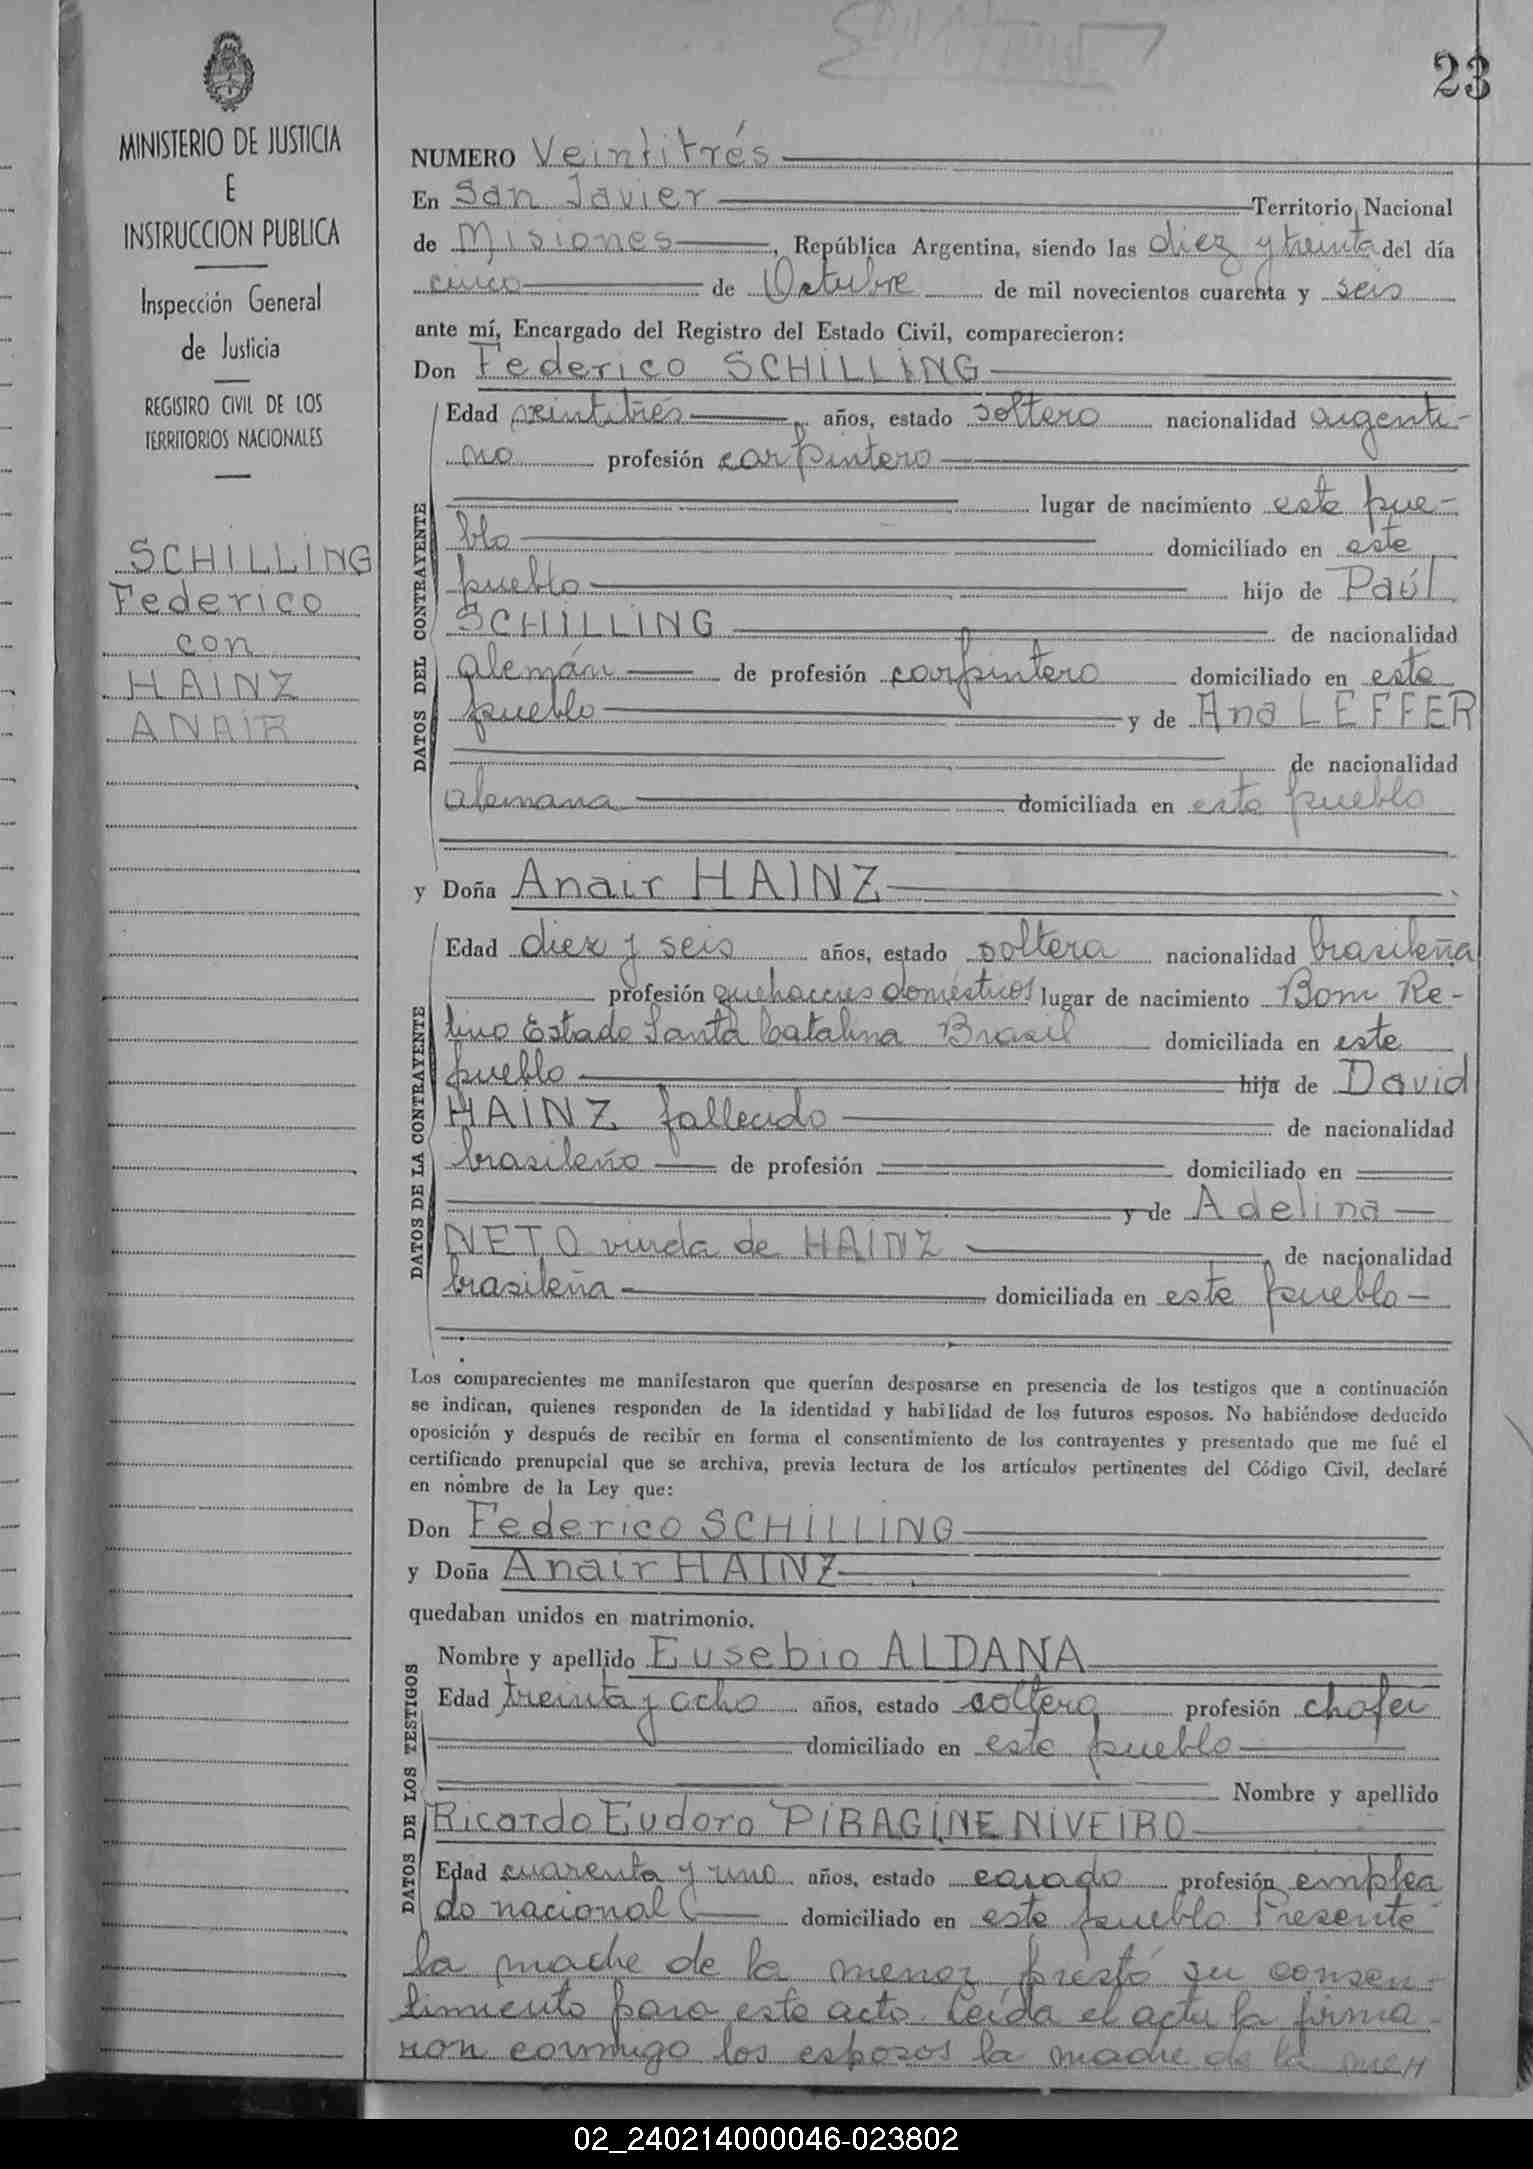 23
MINISTERIO DE JUSTICIA
E
INSTRUCCION PUBLICA
Inspección General
de Justicia
REGISTRO CIVIL DE LOS
TERRITORIOS NACIONALES
SCHILLING
Federico
con
HAINZ
ANAIR
NUMERO Veintitrés
En San Javier Territorio Nacional
de Misiones, República Argentina, siendo las diez y treinta del día
cinco de Octubre de mil novecientos cuarenta y seis
ante mí, Encargado del Registro del Estado Civil, comparecieron:
Don Federico SCHILLING
DATOS DEL CONTRAYENTE
Edad veintitrés años, estado soltero nacionalidad argenti-
no profesión carpintero
lugar de nacimiento este pue-
blo domiciliado en este
pueblo hijo de Paúl
SCHILLING de nacionalidad
alemán de profesión carpintero domiciliado en este
pueblo y de Ana LEFFER
de nacionalidad
alemana domiciliada en este pueblo
y Doña Anair HAINZ
DATOS DE LA CONTRAYENTE
Edad diez y seis años, estado soltera nacionalidad brasileña
profesión quehaceres domésticos lugar de nacimiento Bom Re-
tiro Estado Santa Catalina Brasil domiciliada en este
pueblo hija de David
HAINZ fallecido de nacionalidad
brasileño de profesión domiciliado en
y de Adelina
NETO viuda de HAINZ de nacionalidad
brasileña domiciliada en este pueblo
Los comparecientes me manifestaron que querían desposarse en presencia de los testigos que a continuación
se indican, quienes responden de la identidad y habilidad de los futuros esposos. No habiéndose deducido
oposición y después de recibir en forma el consentimiento de los contrayentes y presentado que me fué el
certificado prenupcial que se archiva, previa lectura de los artículos pertinentes del Código Civil, declaré
en nombre de la Ley que:
Don Federico SCHILLING
y Doña Anair HAINZ
quedaban unidos en matrimonio.
DATOS DE LOS TESTIGOS
Nombre y apellido Eusebio ALDANA
Edad treinta y ocho años, estado soltero profesión chofer
domiciliado en este pueblo
Nombre y apellido
Ricardo Eudoro PIRAGINE NIVEIRO
Edad cuarenta y uno años, estado casado profesión emplea
do nacional domiciliado en este pueblo Presente
la madre de la menor prestó su consen-
timiento para este acto. Leída el acta la firma-
ron conmigo los esposos la madre de la men
02_240214000046-023802